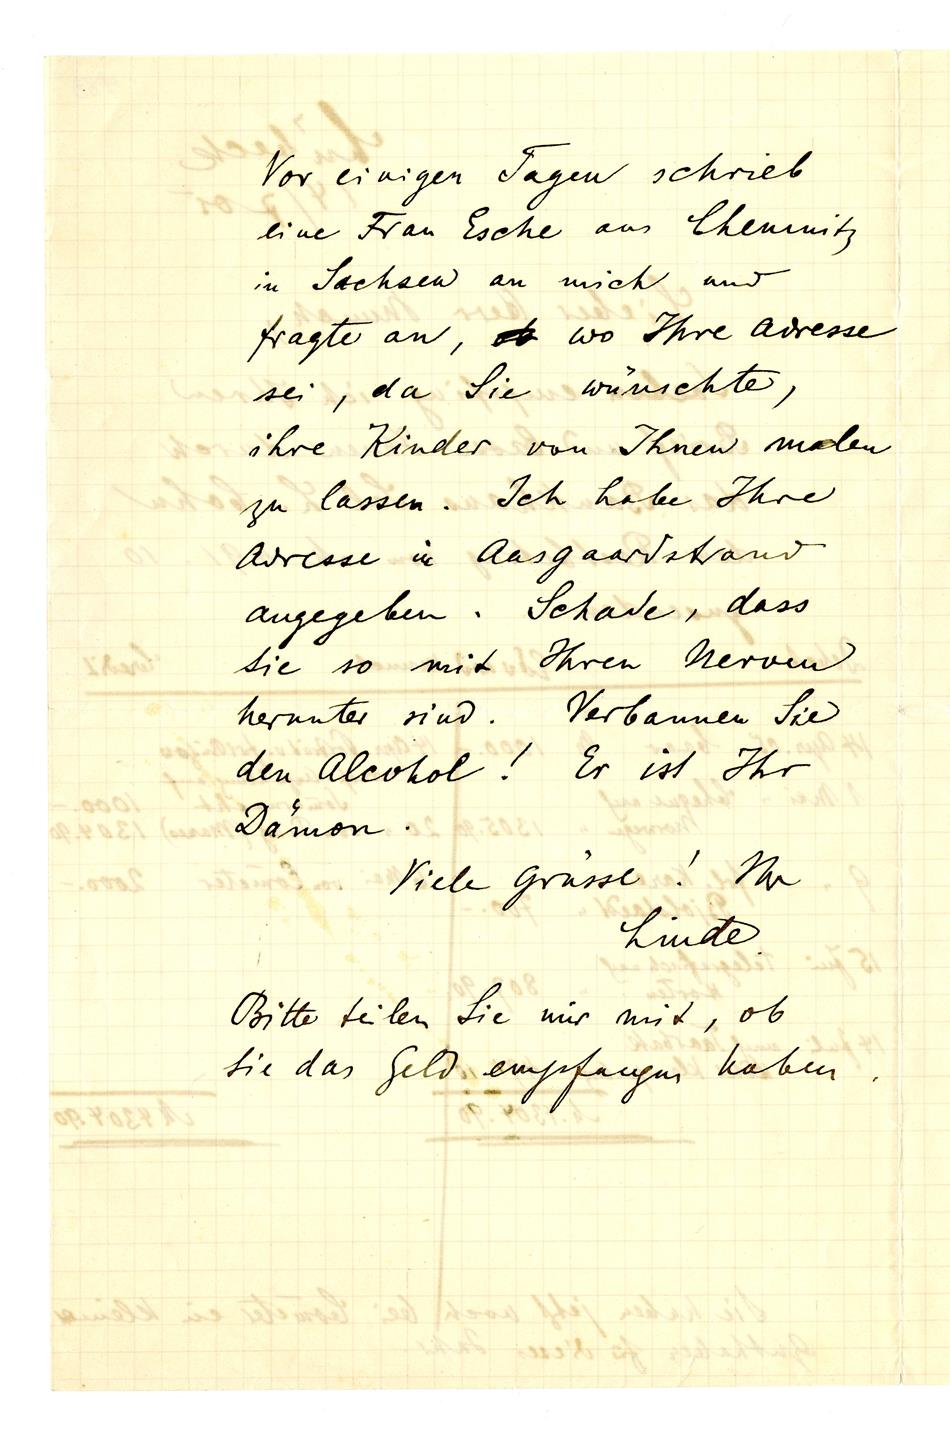 Vor einigen Tagen schrieb
eine Frau Esche aus Chemnitz
in Sachsen an mich und
fragte an, wo Ihre Adresse
sei, da Sie wünschte,
ihre Kinder von Ihnen malen
zu lassen. Ich habe Ihre
Adresse in Aasgaardstrand
angegeben. Schade, dass
Sie so mit Ihren Nerven
herunter sind. Verbannen Sie
den Alcohol! Er ist Ihr
Dämon.
Viele Grüsse! Ihr
Linde.
Bitte teilen Sie mir mit, ob
Sie das Geld empfangen haben.